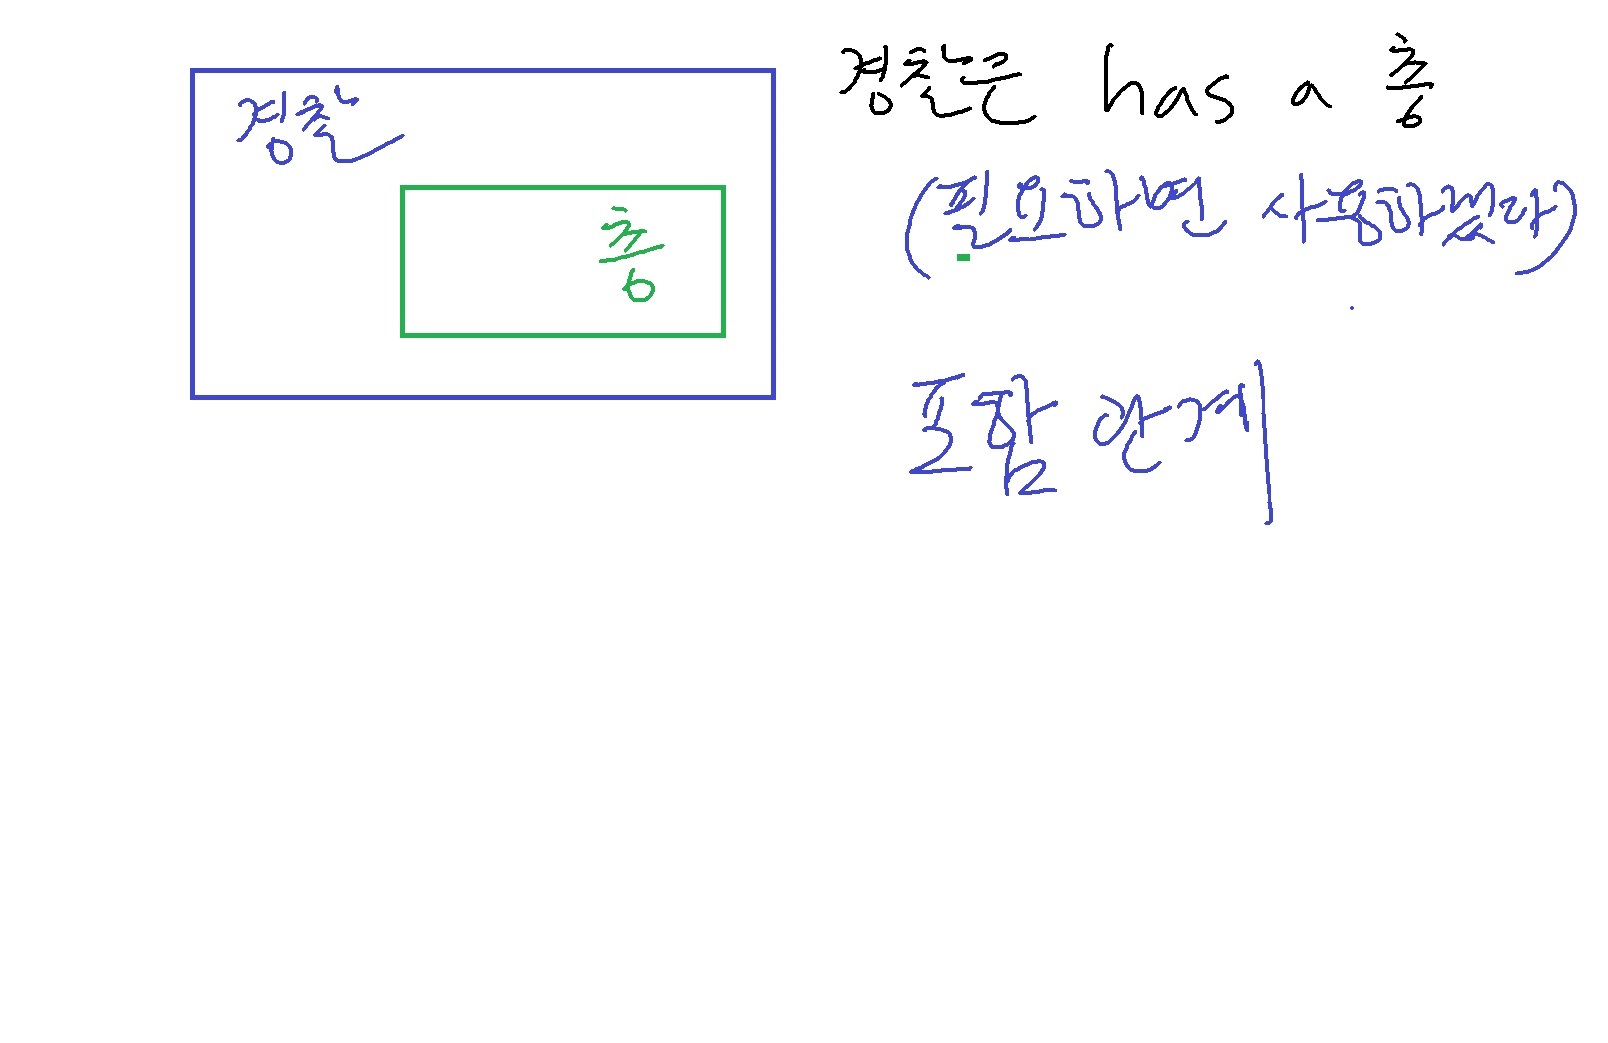 경찰
총
경찰은 has a 총
(필요하면 사용하겠다)
포함 관계